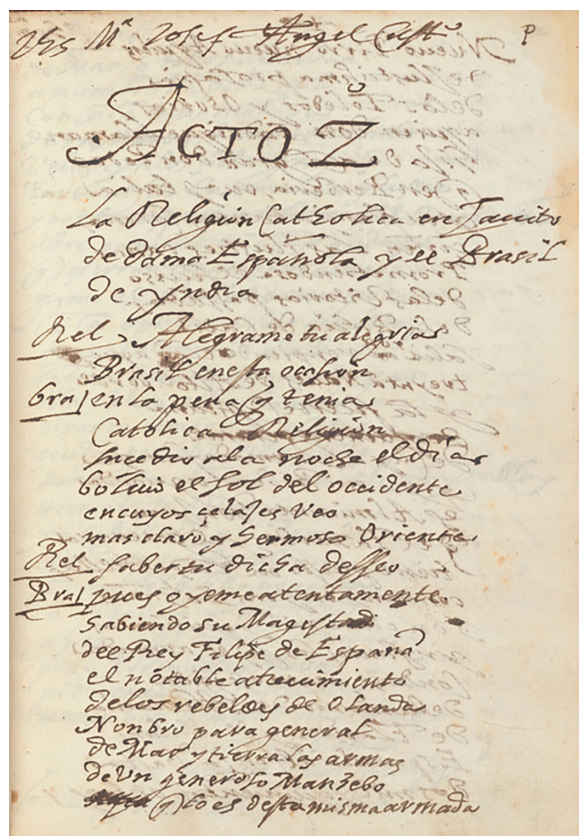 Jhs Mª Josef Angel Custº
P
ACTO 2º
La Religion Catholica en Jacuito
de dama Española y el Brasil
de yndia
Rel Alegrame tu alegria
Brasil en esta ocasion
bra en la pena q tenia
Catolica Religion
sucedio a la noche el dia
bolvio el sol del occidente
en cuyos celajes veo
mas claro y hermoso Oriente
Rel saber tu dicha desseo
Bra pues oyeme atentamente
Sabiendo su Magistad
del Rey Filipe de España
el notable atrevimiento
de los rebeldes de Olanda
Nonbro para general
de Mar y tierra las armas
de un generoso Manzebo
q lo es desta misma armada